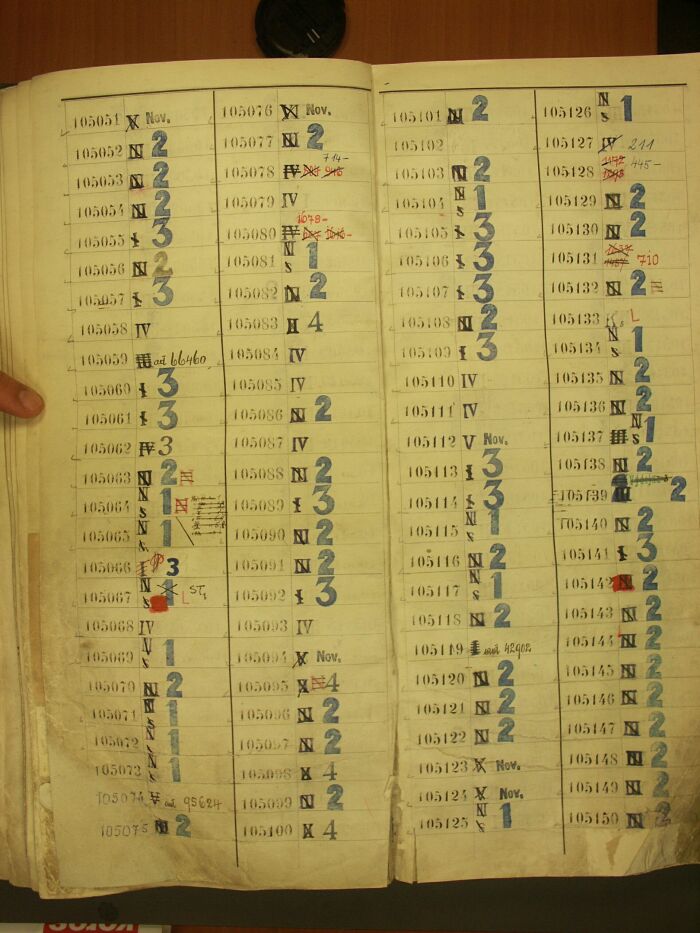 105051 V Nov.
105052 N 2
105053 N 2
105054 N 2
105055 I 3
105056 N 2
105057 I 3
105058 IV
105059 66460
105060 I 3
105061 I 3
105062 IV 3
105063 N 2
105064 N s 1 N
105065 N s 1
105066 3
105067 N s 1 L
105068 IV
105069 N s 1
105070 N 2
105071 N s 1
105072 N s 1
105073 N s 1
105074 V 95624
105075 N 2
105076 V Nov.
105077 N 2
105078 IV 714-
105079 IV
105080 IV 1078-
105081 N s 1
105082 N 2
105083 II 4
105084 IV
105085 IV
105086 N 2
105087 IV
105088 N 2
105089 I 3
105090 N 2
105091 N 2
105092 I 3
105093 IV
105094 V Nov.
105095 X 4
105096 N 2
105097 N 2
105098 X 4
105099 N 2
105100 X 4
105101 N 2
105102
105103 N 2
105104 N s 1
105105 I 3
105106 I 3
105107 I 3
105108 N 2
105109 I 3
105110 IV
105111 IV
105112 V Nov.
105113 I 3
105114 I 3
105115 N s 1
105116 N 2
105117 N s 1
105118 N 2
105119 42902
105120 N 2
105121 N 2
105122 N 2
105123 V Nov.
105124 V Nov.
105125 N s 1
105126 N s 1
105127 IV 211
105128 445-
105129 N 2
105130 N 2
105131 710
105132 N 2
105133 L
105134 N s 1
105135 N 2
105136 N 2
105137 N s 1
105138 N 2
105139 2
105140 N 2
105141 I 3
105142 N 2
105143 N 2
105144 N 2
105145 N 2
105146 N 2
105147 N 2
105148 N 2
105149 N 2
105150 N 2